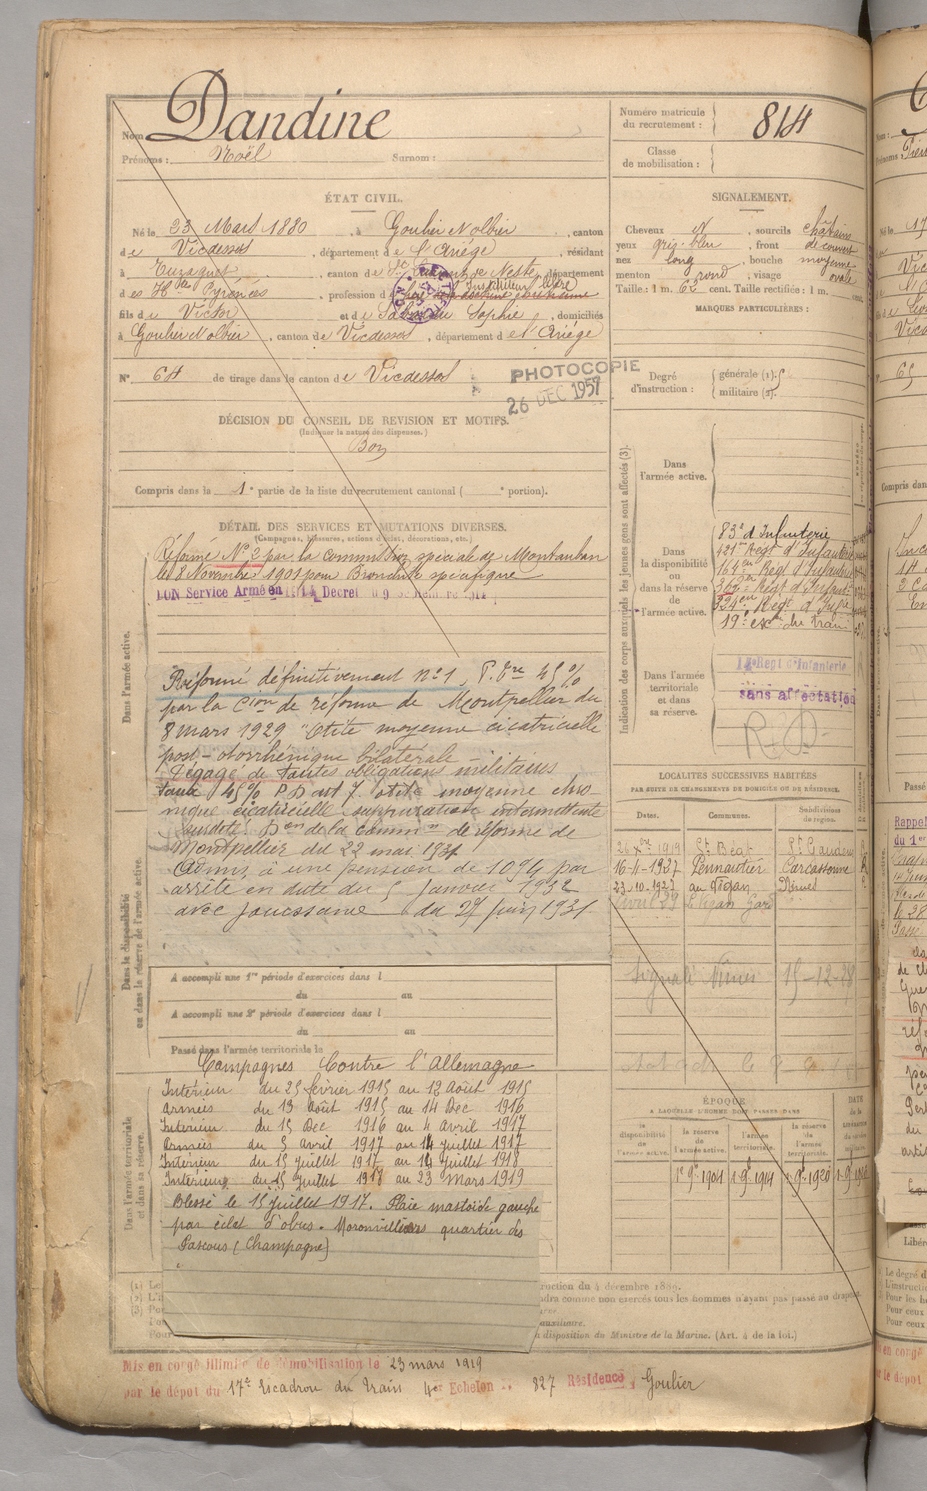 Nom : Dandine
Prénoms : Noël Surnom :
Numéro matricule du recrutement : 814
Classe de mobilisation :
ÉTAT CIVIL.
Né le 23 Mars 1880, à Goulier N Olbier, canton
de Vicdessos, département de l'Ariège, résidant
à Tuzaguet, canton de St Laurent de Neste, département
des Htes Pyrénées, profession d Instituteur libre
fils de Victor et de Sophie, domiciliés
à Goulier N Olbier, canton de Vicdessos, département de l'Ariège
N° 64 de tirage dans le canton de Vicdessos
PHOTOCOPIE
26 DEC 1957
DÉCISION DU CONSEIL DE REVISION ET MOTIFS.
(Indiquer la nature des dispenses.)
Bon
Compris dans la 1e partie de la liste du recrutement cantonal ( e portion).
SIGNALEMENT.
Cheveux N, sourcils châtains
yeux gris-bleu, front découvert
nez long, bouche moyenne
menton rond, visage ovale
Taille : 1 m. 62 cent. Taille rectifiée : 1 m. cent.
MARQUES PARTICULIÈRES :
Degré d'instruction : générale (1).
militaire (2).
Indication des corps auxquels les jeunes gens sont affectés (3).
Dans l'armée active.
Dans la disponibilité ou dans la réserve de l'armée active.
83e d'Infanterie
421e Regt d'Infanterie
164e Regt d'Infanterie
Regt d'Infant.
324e Regt d'Infie
19e escon du train
Dans l'armée territoriale et dans sa réserve.
Regt d'Infanterie
sans affectation
DÉTAIL DES SERVICES ET MUTATIONS DIVERSES.
(Campagnes, blessures, actions d'éclat, décorations, etc.)
Dans l'armée active.
Réformé N° 2 par la commission spéciale de Montauban
le 8 Novembre 1901 pour Bronchite spécifique
BON Service Armé en 1914 Décret du 9 Septembre 1914
Réformé définitivement n° 1, P. 45%
par la Cion de réforme de Montpellier du
8 mars 1929 "Otite moyenne cicatricielle
post-otorrhénique bilatérale
Dégagé de toutes obligations militaires
taux 45% P D art 7 otite moyenne chro-
nique cicatricielle suppuration intermittente
surdité. Don de la common de réforme de
Montpellier du 22 mai 1931
Admis à une pension de 10% par
arrêté en date du 5 Janvier 1932
avec jouissance du 27 juin 1931
Dans la disponibilité ou dans la réserve de l'armée active.
A accompli une 1re période d'exercices dans l
du au
A accompli une 2e période d'exercices dans l
du au
Passé dans l'armée territoriale le
Dans l'armée territoriale et dans sa réserve.
Campagnes Contre l'Allemagne
Intérieur du 25 février 1915 au 12 Août 1915
Armées du 13 Août 1915 au 14 Dec 1916
Intérieur du 15 Dec 1916 au 4 avril 1917
Armées du 5 avril 1917 au 14 juillet 1917
Intérieur du 15 juillet 1917 au 14 juillet 1918
Intérieur du 15 juillet 1918 au 23 Mars 1919
Blessé le 15 juillet 1917. Plaie mastoïde gauche
par éclat d'obus. Moronvilliers quartier des
Pascous (Champagne)
LOCALITÉS SUCCESSIVES HABITÉES
PAR SUITE DE CHANGEMENTS DE DOMICILE OU DE RÉSIDENCE.
Dates. Communes. Subdivisions de région.
1919 St Béat St Gaudens
16-4-1927 Pennautier Carcassonne
23-10-1927 au Vigan Nîmes
Avril 29 Le Vigan Gard
Signalé Nîmes 15-12-28
ÉPOQUE
A LAQUELLE L'HOMME DOIT PASSER DANS
la disponibilité de l'armée active.
la réserve de l'armée active.
l'armée territoriale.
la réserve de l'armée territoriale.
DATE de la
1er 9e 1901 1-9-1914 1-9-1920
ruction du 4 décembre 1889.
dra comme non exercés tous les hommes n'ayant pas passé au drapeau
auxiliaire.
a disposition du Ministre de la Marine. (Art. 4 de la loi.)
Mis en congé illimité de démobilisation le 23 mars 1919
par le dépôt du 17e Escadron du train 4e Echelon N° 827 Résidence Goulier